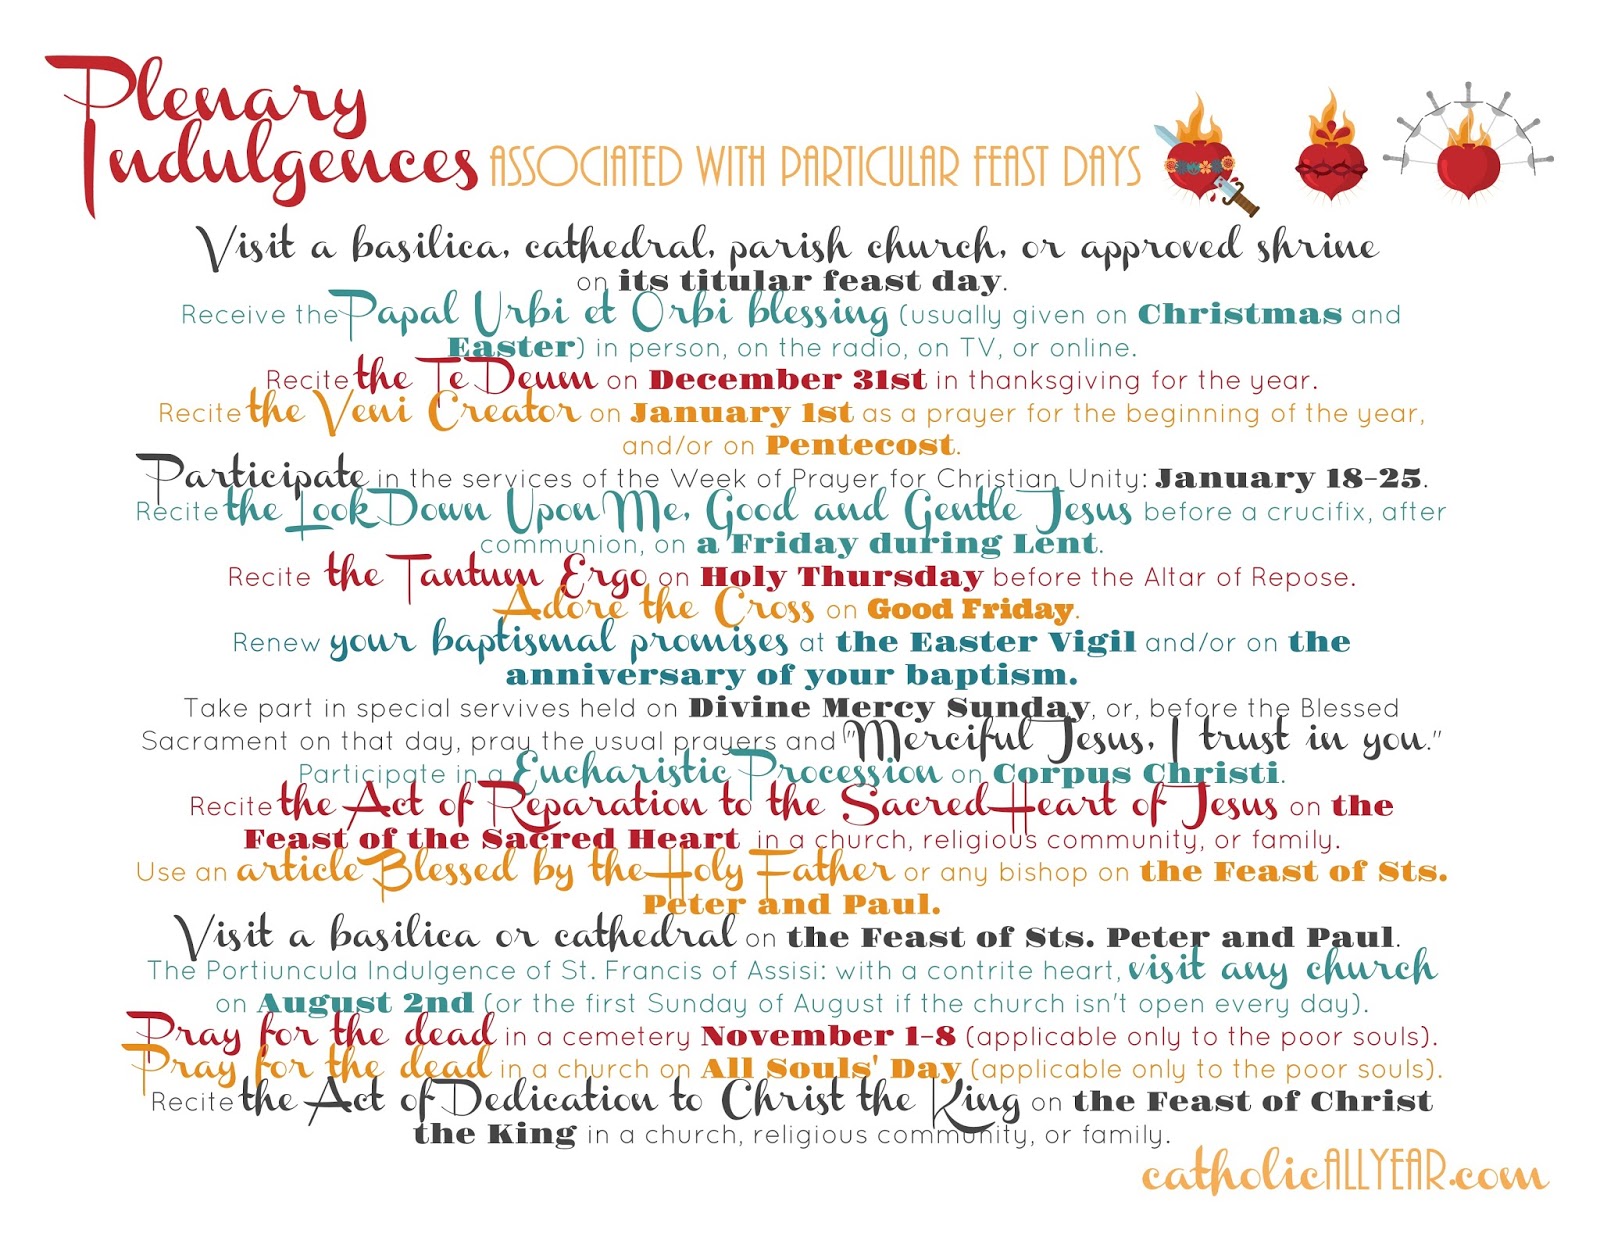 Plenary
Indulgences ASSOCIATED WITH PARTICULAR FEAST DAYS
Visit a basilica, cathedral, parish church, or approved shrine
on its titular feast day.
Receive the Papal Urbi et Orbi blessing (usually given on Christmas and
Easter) in person, on the radio, on TV, or online.
Recite the Te Deum on December 31st in thanksgiving for the year.
Recite the Veni Creator on January 1st as a prayer for the beginning of the year,
and/or on Pentecost.
Participate in the services of the Week of Prayer for Christian Unity: January 18-25.
Recite the Look Down Upon Me, Good and Gentle Jesus before a crucifix, after
communion, on a Friday during Lent.
Recite the Tantum Ergo on Holy Thursday before the Altar of Repose.
Adore the Cross on Good Friday.
Renew your baptismal promises at the Easter Vigil and/or on the
anniversary of your baptism.
Take part in special servives held on Divine Mercy Sunday, or, before the Blessed
Sacrament on that day, pray the usual prayers and "Merciful Jesus, I trust in you."
Participate in a Eucharistic Procession on Corpus Christi.
Recite the Act of Reparation to the Sacred Heart of Jesus on the
Feast of the Sacred Heart in a church, religious community, or family.
Use an article Blessed by the Holy Father or any bishop on the Feast of Sts.
Peter and Paul.
Visit a basilica or cathedral on the Feast of Sts. Peter and Paul.
The Portiuncula Indulgence of St. Francis of Assisi: with a contrite heart, visit any church
on August 2nd (or the first Sunday of August if the church isn't open every day).
Pray for the dead in a cemetery November 1-8 (applicable only to the poor souls).
Pray for the dead in a church on All Souls' Day (applicable only to the poor souls).
Recite the Act of Dedication to Christ the King on the Feast of Christ
the King in a church, religious community, or family.
catholicALLYEAR.com